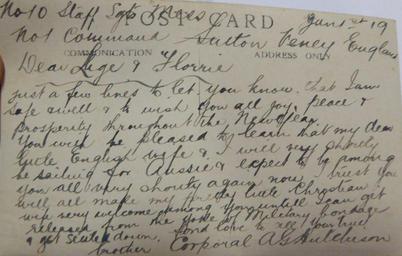 No 10 Staff Sgts Mess
POST CARD
June 1st 19
No 1 Command Sutton Veney England
COMMUNICATION ADDRESS ONLY
Dear Lige & Florrie
Just a few lines to let you know that I am
safe & well & to wish you all joy, peace &
prosperity throughout the New Year.
You will be pleased to learn that my dear
little English wife & I will very shortly
be sailing for Aussie & expect to be among
you all very shortly again now, I trust you
will all make my pretty little Christian
wife very welcome among you until I can get
released from the yoke of Military bondage
& get settled down. fond love to all your true
brother Corporal A G Hutchison